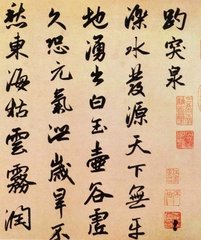 趵突泉
濼水發源天下無平
地湧出白玉壺谷虛
久恐元氣洩歲旱不
愁東海枯雲霧潤